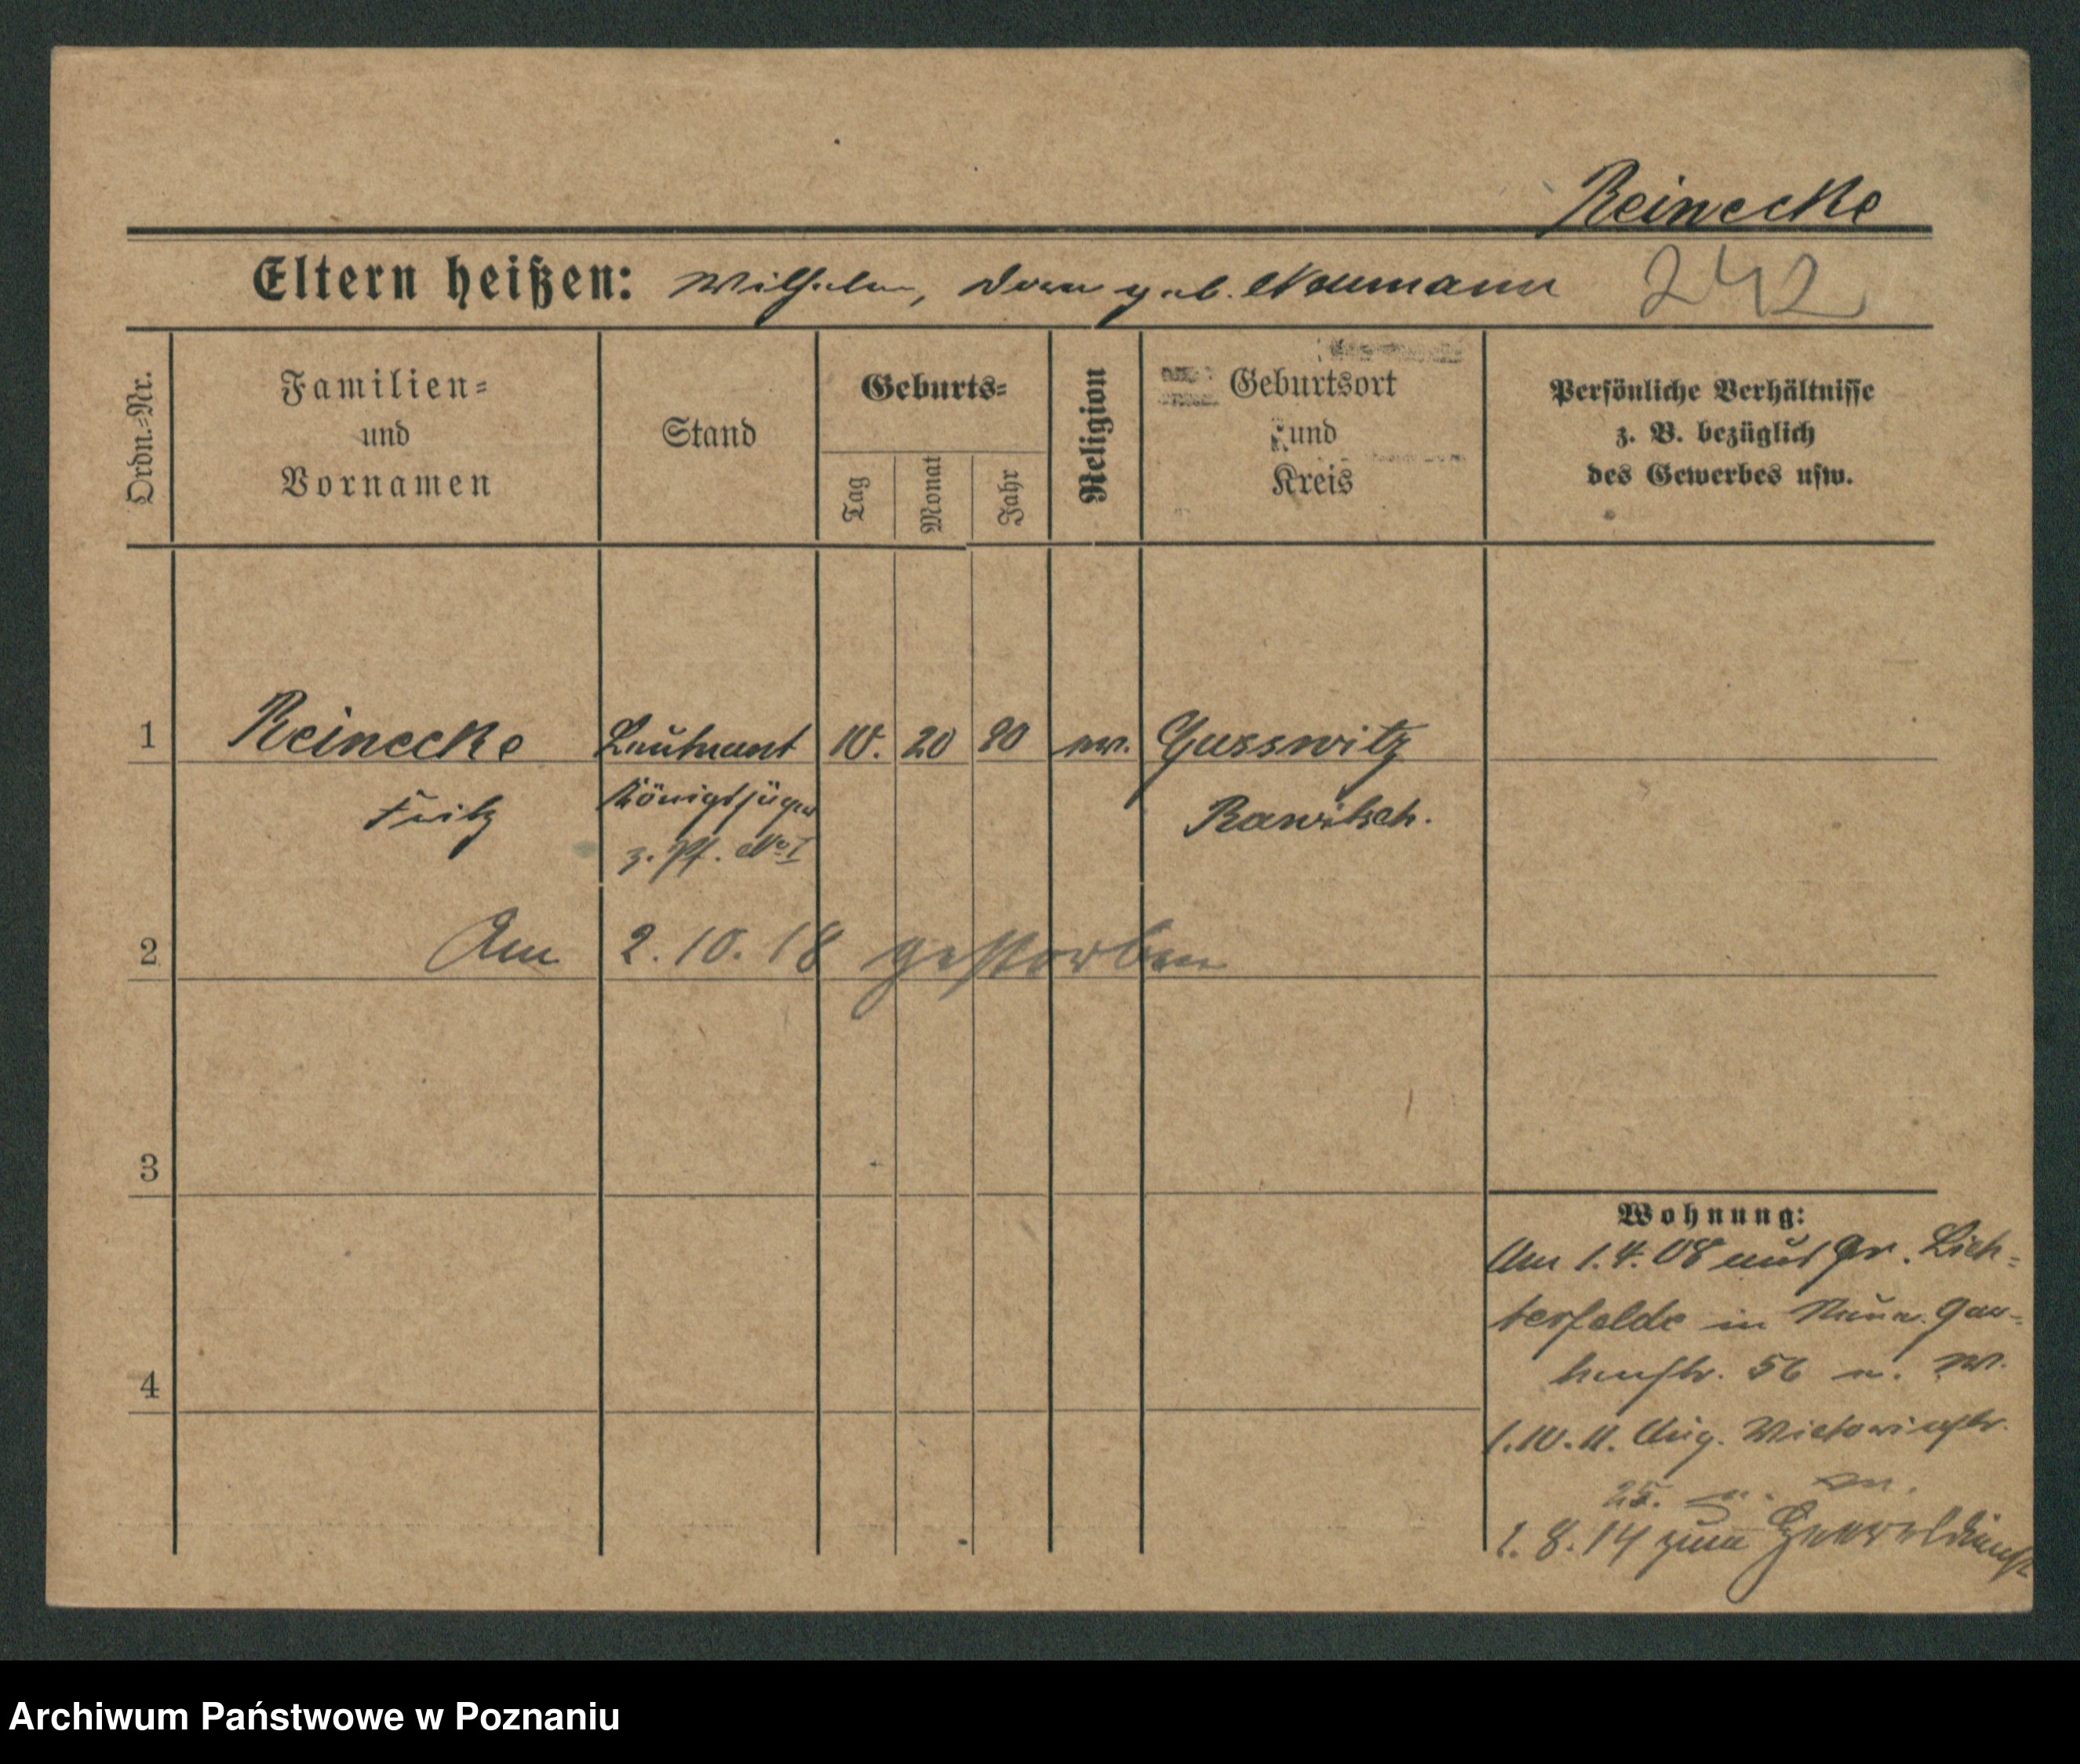 Reinecke
Eltern heißen: Wilhelm, geb. Naumann 242
Ordn.-Nr.
Familien-
und
Vornamen
Stand
Geburts-
Tag
Monat
Jahr
Religion
Geburtsort
und
Kreis
Persönliche Verhältnisse
z. B. bezüglich
des Gewerbes usw.
1 Reinecke Leutnant 10. 20 90 ev. Gusswitz
Fritz Königsjäger Rawitsch.
z. Pf. No I
2 Am 2.10.18 gestorben
3
4
Wohnung:
Am 1.4.08 aus Gr. Lich-
terfelde in
56
1.10.11. Aug. Victoriastr.
25.
1.8.14 zum Heeresdienst
Archiwum Państwowe w Poznaniu